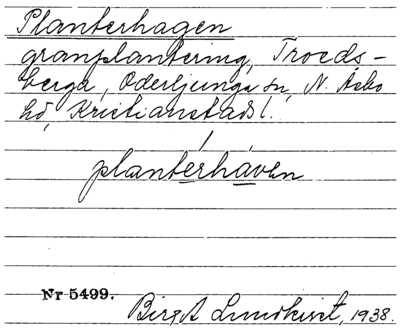 Planterhagen
granplantering, Troeds-
berga, Oderljunga sn, N. Åsbo
hd, Kristianstads l.
plantərhávən
Nr 5499.
Birgit Lundkvist, 1938.